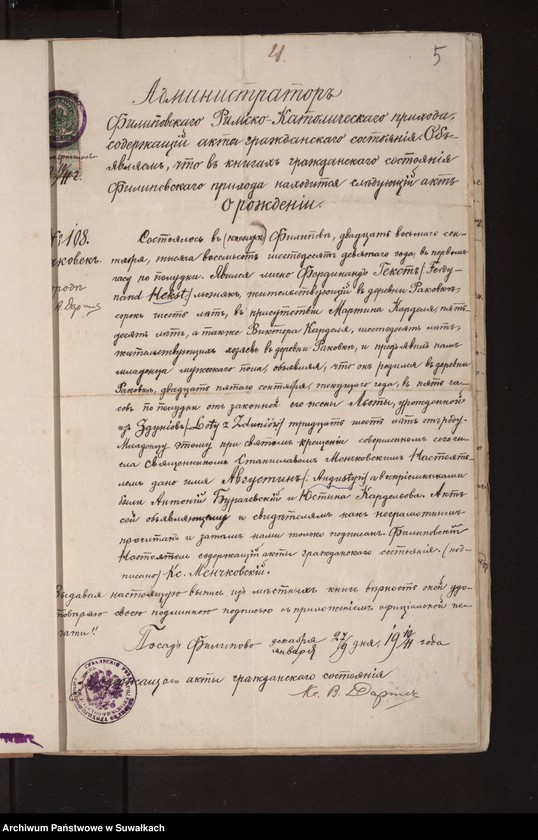 4
5
Администраторъ
Филиповскаго Римско-Католическаго прихода,
содержащій акты гражданскаго состоянія Объ-
являемъ, что въ книгахъ гражданскаго состоянія
Филиповскаго прихода находится слѣдующій актъ
О рожденіи.
№ 108.
Состоялось въ Филиповѣ, двадцать восьмаго сен-
тября, тысяча восемьсотъ шестьдесятъ девятаго года, въ первомъ
часу по полудни. Явился лично Фердинандъ Гекстъ /Ferdy-
nand Hekst/ жительствующій въ деревни Раковкѣ,
сорокъ шесть лѣтъ, въ присутствіи Мартина Карделя, пять-
десятъ лѣтъ, а также Виктора Карделя, шестьдесятъ лѣтъ,
жительствующихъ въ деревни Раковкѣ, и предъявилъ намъ
младенца мужскаго пола объявляя, что онъ родился въ деревни
Раковкѣ, двадцать пятаго сентября текущаго года, въ пять ча-
совъ по полудни отъ законной его жены Льоты, урожденной
изъ Здунювъ /Loty z Zduniów/ тридцать шесть лѣтъ отъ роду.
Младенцу этому при святомъ крещеніи совершенномъ сего чи-
сла священникомъ Станиславомъ Менчковскимъ Настояте-
лемъ дано имя Августинъ /Augustyn/ а воспріемниками
были Антоній Бурачевскій и Юстина Карделова. Актъ
сей объявляющему и свидѣтелямъ какъ неграмотнымъ
прочитанъ и затѣмъ нами только подписанъ. Филиповскій
Настоятель содержащій акты гражданскаго состоянія. (под-
писано) Кс. Менчковскій.
Выдавая настоящую выпись изъ мѣстныхъ книгъ вѣрность оной удо-
стовѣряю своею подлинною подписью съ приложеніемъ официальной пе-
чати!!
Посадъ Филипово декабря января 27/9 дня, 19 10/11 года
Содержащаго акты гражданскаго состоянія
Кс. В.
Archiwum Państwowe w Suwałkach